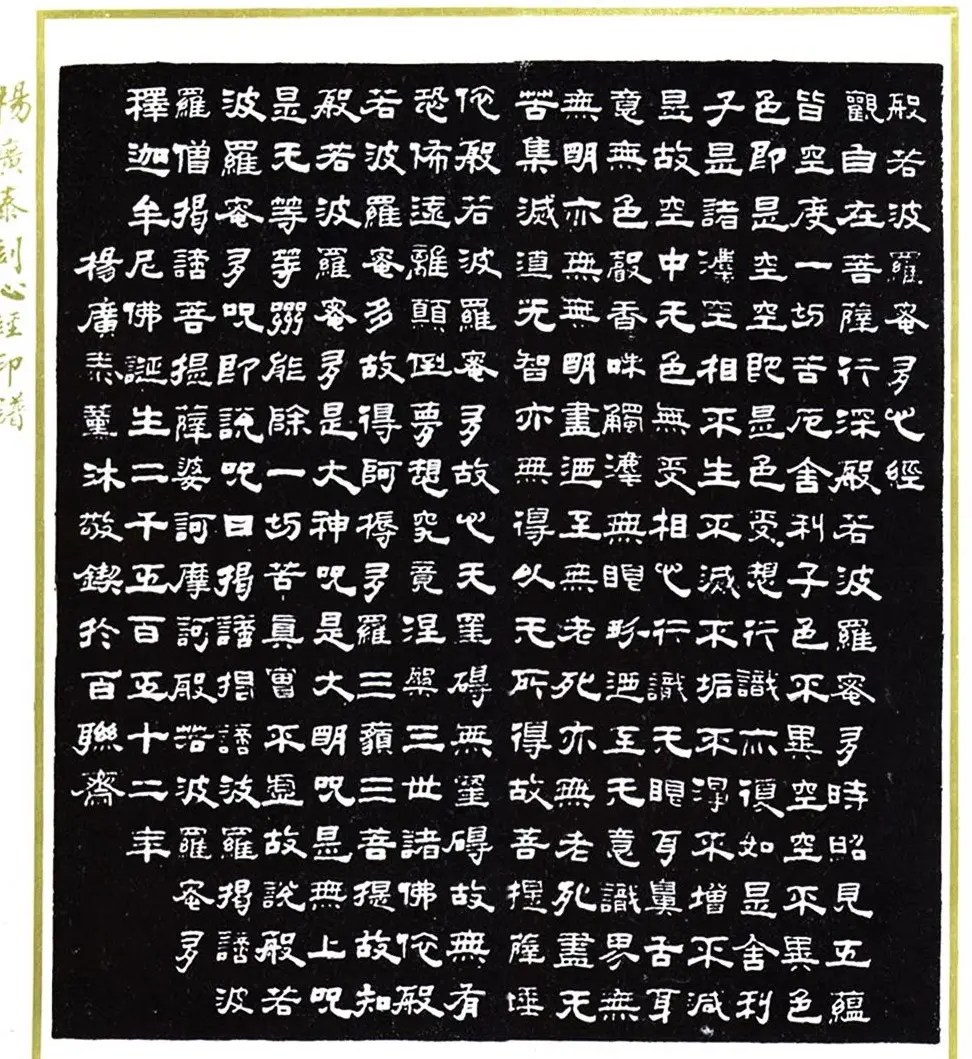 般若波羅蜜多心經
觀自在菩薩行深般若波羅蜜多時昭見五蘊
皆空度一切苦厄舍利子色不異空空不異色
色即是空空即是色受想行識亦復如是舍利
子是諸法空相不生不滅不垢不淨不增不減
是故空中无色無受相心行識无眼耳鼻舌耳
意無色聲香味觸灋無眼畍迺至无意識界無
無明亦無無明盡迺至無老死亦無老死盡无
苦集滅道无智亦無得以无所得故菩提薩埵
依般若波羅蜜多故心无罣礙無罣礙故無有
恐怖遠離顛倒夢想究竟涅槃三世諸佛依般
若波羅蜜多故得阿耨多羅三藐三菩提故知
般若波羅蜜多是大神咒是大明咒是無上咒
是无等等咒能除一切苦真實不虛故說般若
波羅蜜多咒即說咒曰揭諦揭諦波羅揭諦波
羅僧揭諦菩提薩婆訶摩訶般若波羅蜜多
釋迦牟尼佛誕生二千五百五十二年
楊廣泰薰沐敬鍥於百聯齋
楊廣泰刻心經印譜